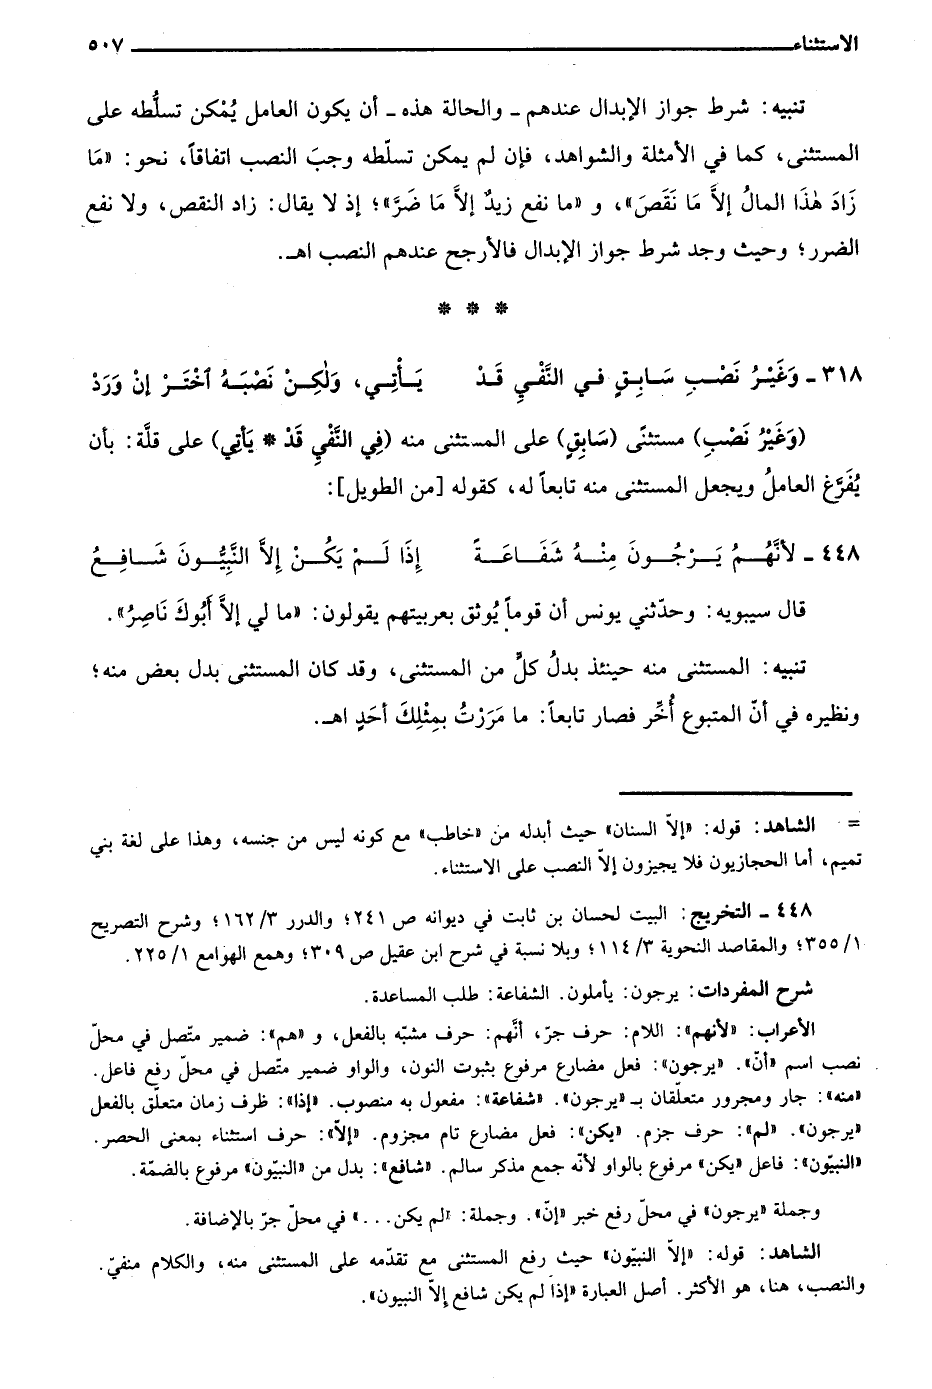 الاستثناء ٥٠٧
تنبيه: شرط جواز الإبدال عندهم ـ والحالة هذه ـ أن يكون العامل يُمْكن تسلُّطه على
المستثنى، كما في الأمثلة والشواهد، فإن لم يمكن تسلّطه وجبَ النصب اتفاقاً، نحو: «مَا
زَادَ هٰذَا المالُ إلاَّ مَا نَقَصَ»، و «ما نفع زيدٌ إلاَّ مَا ضَرَّ»؛ إذ لا يقال: زاد النقص، ولا نفع
الضرر؛ وحيث وجد شرط جواز الإبدال فالأرجح عندهم النصب اهـ.
* * *
٣١٨ ـ وَغَيْرُ نَصْبِ سَابِقٍ في النَّفْيِ قَدْ يَأْتِي، وَلٰكِنْ نَصْبَهُ ٱخْتَرْ إنْ وَرَدْ
(وَغَيْرُ نَصْبِ) مستثنًى (سَابِقٍ) على المستثنى منه (فِي النَّفْيِ قَدْ * يَأتِي) على قلَّة: بأن
يُفَرَّغ العاملُ ويجعل المستثنى منه تابعاً له، كقوله [من الطويل]:
٤٤٨ ـ لأنَّهُمُ يَرْجُونَ مِنْهُ شَفَاعَةً إذَا لَمْ يَكُنْ إلاَّ النَّبِيُّونَ شَافِعُ
قال سيبويه: وحدّثني يونس أن قوماً يُوثق بعربيتهم يقولون: «ما لي إلاَّ أَبُوكَ نَاصِرُ».
تنبيه: المستثنى منه حينئذ بدلُ كلٍّ من المستثنى، وقد كان المستثنى بدل بعض منه؛
ونظيره في أنّ المتبوع أُخِّر فصار تابعاً: ما مَرَرْتُ بِمِثْلِكَ أحَدٍ اهـ.
= الشاهد: قوله: «إلاّ السنان» حيث أبدله من «خاطب» مع كونه ليس من جنسه، وهذا على لغة بني
تميم، أما الحجازيون فلا يجيزون إلاّ النصب على الاستثناء.
٤٤٨ ـ التخريج: البيت لحسان بن ثابت في ديوانه ص ٢٤١؛ والدرر ٣/ ١٦٢؛ وشرح التصريح
١/ ٣٥٥؛ والمقاصد النحوية ٣/ ١١٤؛ وبلا نسبة في شرح ابن عقيل ص ٣٠٩؛ وهمع الهوامع ١/ ٢٢٥.
شرح المفردات: يرجون: يأملون. الشفاعة: طلب المساعدة.
الأعراب: «لأنهم»: اللام: حرف جرّ، أنَّهم: حرف مشبّه بالفعل، و «هم»: ضمير متّصل في محلّ
نصب اسم «أنّ». «يرجون»: فعل مضارع مرفوع بثبوت النون، والواو ضمير متّصل في محلّ رفع فاعل.
«منه»: جار ومجرور متعلّقان بـ «يرجون». «شفاعة»: مفعول به منصوب. «إذا»: ظرف زمان متعلّق بالفعل
«يرجون». «لم»: حرف جزم. «يكن»: فعل مضارع تام مجزوم. «إلاّ»: حرف استثناء بمعنى الحصر.
«النبيّون»: فاعل «يكن» مرفوع بالواو لأنّه جمع مذكر سالم. «شافع»: بدل من «النبيّون» مرفوع بالضمّة.
وجملة «يرجون» في محلّ رفع خبر «إنّ». وجملة: «لم يكن...» في محلّ جرّ بالإضافة.
الشاهد: قوله: «إلاّ النبيّون» حيث رفع المستثنى مع تقدّمه على المستثنى منه، والكلام منفيّ.
والنصب، هنا، هو الأكثر. أصل العبارة «إذا لم يكن شافع إلاّ النبيون».